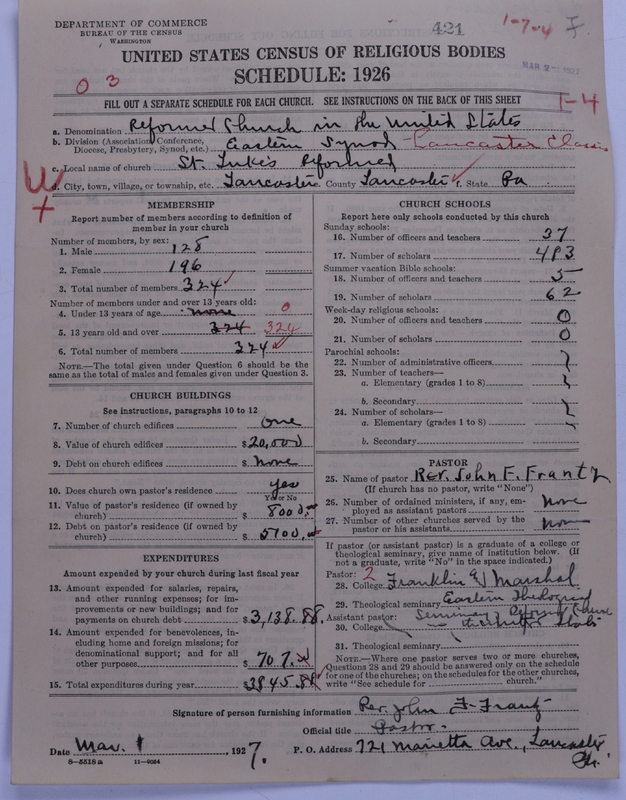 DEPARTMENT OF COMMERCE
BUREAU OF THE CENSUS
WASHINGTON
421
1-7-4
MAR 2- 1927
UNITED STATES CENSUS OF RELIGIOUS BODIES
SCHEDULE: 1926
0 3
FILL OUT A SEPARATE SCHEDULE FOR EACH CHURCH. SEE INSTRUCTIONS ON THE BACK OF THIS SHEET
1-4
a. Denomination Reformed Church in the United States
b. Division (Association, Conference, Diocese, Presbytery, Synod, etc.) Eastern Synod - Lancaster Classis
c. Local name of church St. Luke's Reformed
d. City, town, village, or township, etc. Lancaster e. County Lancaster f. State Pa
MEMBERSHIP
Report number of members according to definition of member in your church
Number of members, by sex:
1. Male 128
2. Female 196
3. Total number of members 324
Number of members under and over 13 years old:
4. Under 13 years of age none 0
5. 13 years old and over 324 324
6. Total number of members 324
NOTE.—The total given under Question 6 should be the same as the total of males and females given under Question 3.
CHURCH BUILDINGS
See instructions, paragraphs 10 to 12
7. Number of church edifices one
8. Value of church edifices $20,000
9. Debt on church edifices $ none
10. Does church own pastor's residence yes
Yes or No
11. Value of pastor's residence (if owned by church) $ 8000.
12. Debt on pastor's residence (if owned by church) $ 5700.
EXPENDITURES
Amount expended by your church during last fiscal year
13. Amount expended for salaries, repairs, and other running expenses; for improvements or new buildings; and for payments on church debt $3,138.88
14. Amount expended for benevolences, including home and foreign missions; for denominational support; and for all other purposes $ 707.
15. Total expenditures during year $3845.88
CHURCH SCHOOLS
Report here only schools conducted by this church
Sunday schools:
16. Number of officers and teachers 37
17. Number of scholars 483
Summer vacation Bible schools:
18. Number of officers and teachers 5
19. Number of scholars 62
Week-day religious schools:
20. Number of officers and teachers 0
21. Number of scholars 0
Parochial schools:
22. Number of administrative officers
23. Number of teachers—
a. Elementary (grades 1 to 8)
b. Secondary
24. Number of scholars—
a. Elementary (grades 1 to 8)
b. Secondary
PASTOR
25. Name of pastor Rev. John F. Frantz
(If church has no pastor, write "None")
26. Number of ordained ministers, if any, employed as assistant pastors none
27. Number of other churches served by the pastor or his assistants none
If pastor (or assistant pastor) is a graduate of a college or theological seminary, give name of institution below. (If not a graduate, write "No" in the space indicated.)
Pastor: 2
28. College Franklin & Marshal
29. Theological seminary Eastern Theological
Assistant pastor: Seminary Reformed Church
30. College in the United States
31. Theological seminary
NOTE.—Where one pastor serves two or more churches, Questions 28 and 29 should be answered only on the schedule for one of the churches; on the schedules for the other churches, write "See schedule for church."
Signature of person furnishing information Rev. John F. Frantz
Official title Pastor.
Date Mar. 1, 1927. P. O. Address 721 Marietta Ave., Lancaster
Pa.
8—5518 a 11—9064